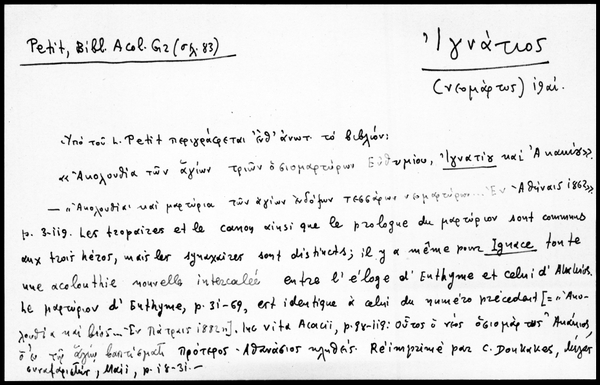 Petit, Bibl. Acol. Gr. (σελ. 83)
Ἰγνάτιος
(νεομάρτυς) ἰθαγ.
Ὑπὸ τοῦ L. Petit περιγράφεται ἐνθ' ἀνωτ. τὸ βιβλίον:
« Ἀκολουθία τῶν ἁγίων τριῶν ὁσιομαρτύρων Εὐθυμίου, Ἰγνατίου καὶ Ἀκακίου».
— „Ἀκολουθία καὶ μαρτύρια τῶν ἁγίων ἐνδόξων τεσσάρων νεομαρτύρων... Ἐν Ἀθήναις 1862»
p. 3-119. Les tropaires et le canon ainsi que le prologue du μαρτύριον sont communs
aux trois héros, mais les synaxaires sont distincts; il y a même pour Ignace toute
une acolouthie nouvelle intercalée entre l'éloge d'Euthyme et celui d'Akakios.
Le μαρτύριον d'Euthyme, p. 31-69, est identique à celui du numéro précédent [= „Ἀκο-
λουθία καὶ βίος – Ἐν Πάτραις 1882"]. Inc vita Acacii, p. 94-119: Οὗτος ὁ νέος ὁσιομάρτυς Ἀκάκιος,
ὁ ἐν τῷ ἁγίῳ βαπτίσματι πρότερος Ἀθανάσιος κληθείς. Réimprimé par C. Doukakès, Μέγας
συναξαριστής, Maii, p. 18-31.—